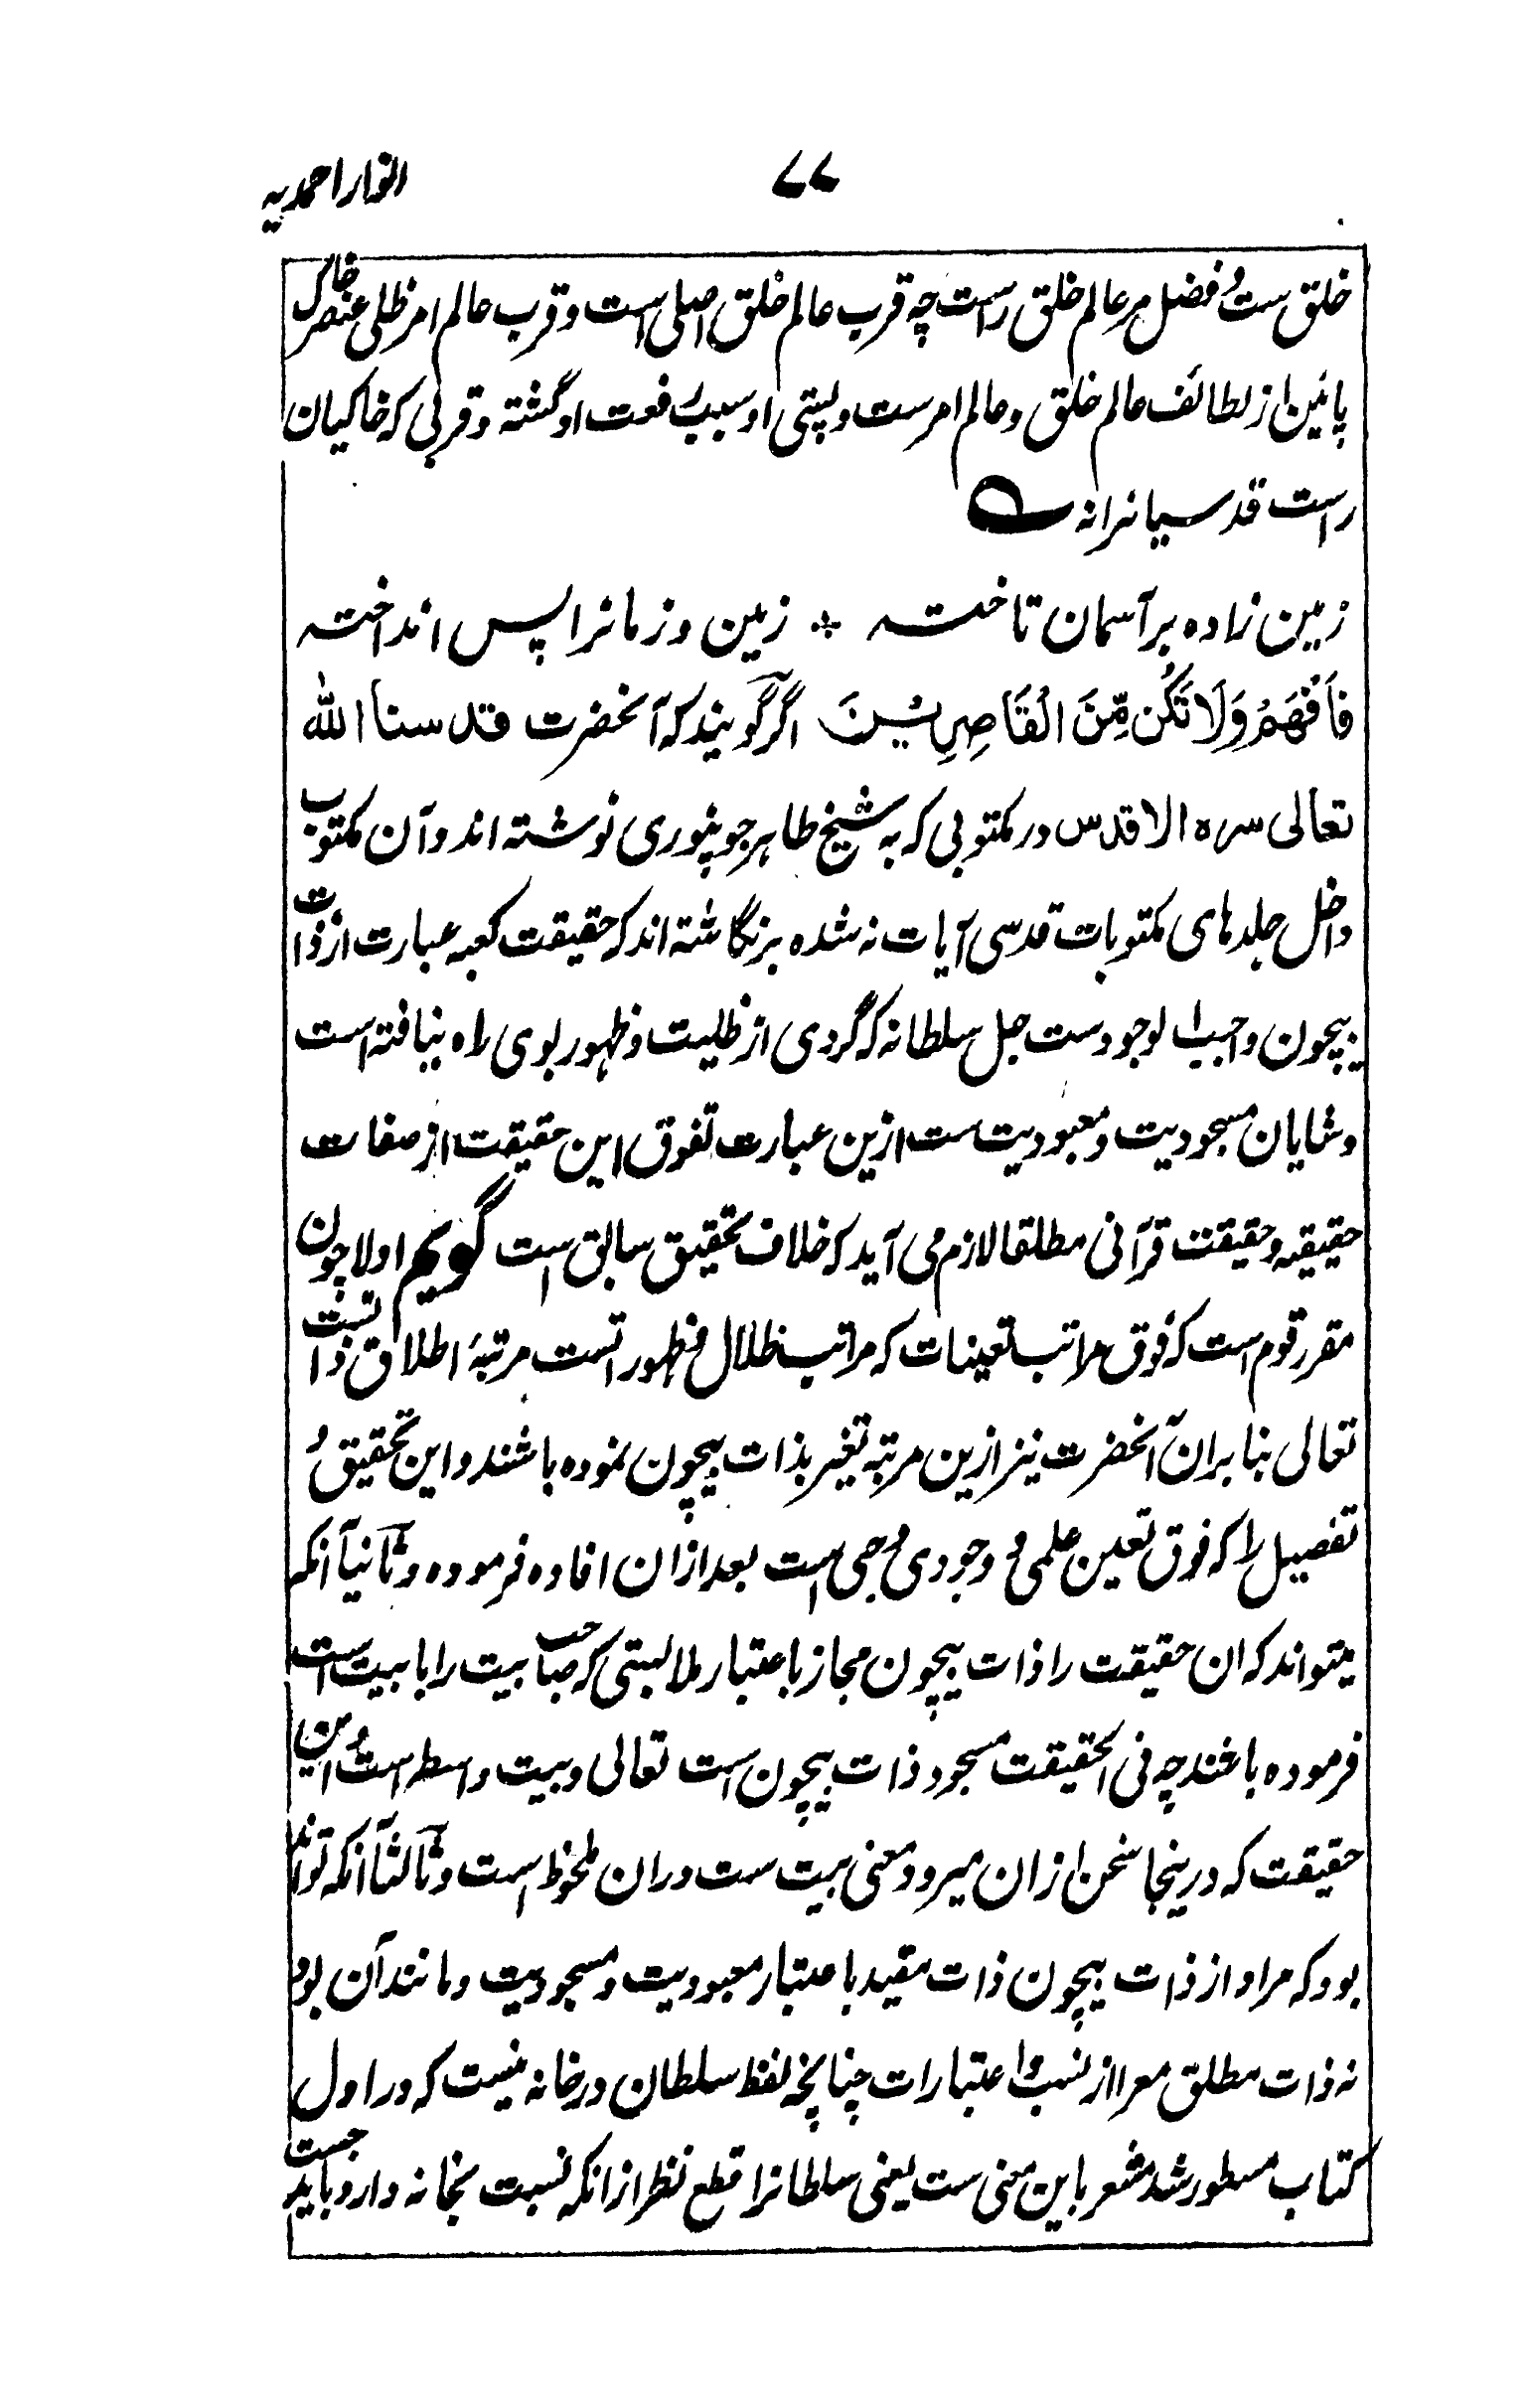 ۷۷ انوار احمدیه
خلق ست و فضل مر عالم خلق راست چه قرب عالم خلق اصلی است و قرب عالم امر ظلی عنصر خاک
پائین از لطائف عالم خلق و عالم امرست و پستی او سبب رفعت او گشته و قربی که خاکیان
راست قدسیانرا نه ؎
زمین زاده بر آسمان تاخته ❊ زمین و زمانرا پس انداخته
فَافْهَمْ وَلَا تَكُن مِّنَ الْقَاصِرِيْنَ اگر گویند که آنحضرت قدسنا الله
تعالی سره الاقدس در مکتوبی که به شیخ طاهر جونپوری نوشته اند و آن مکتوب
داخل جلدهای مکتوبات قدسی آیات نه شده برنگاشته اند که حقیقت کعبه عبارت از ذات
بیچون واجب الوجودست جل سلطانه که گردی از ظلیت و ظهور بوی راه نیافته است
و شایان مسجودیت و معبودیت ست ازین عبارت تفوق این حقیقت از صفات
حقیقیه و حقیقت قرآنی مطلقا لازم می آید که خلاف تحقیق سابق است گویم اولا چون
مقرر قوم است که فوق مراتب تعینات که مراتب ظلال و ظهورات ست مرتبهٔ اطلاق ذات ست
تعالی بنا بران آنحضرت نیز ازین مرتبه تغیر بذات بیچون نموده باشند و این تحقیق و
تفصیل را که فوق تعین علمی و وجودی و حبی است بعد ازان افاده فرموده و ثانیاً آنکه
میتواند که ان حقیقت را ذات بیچون مجاز باعتبار ملابستی که صاحب بیت را با بیت است
فرموده باشند چه فی الحقیقت مسجود ذات بیچون است تعالی و بیت واسطه است و این
حقیقت که درینجا سخن ازان میرود معنی بیت ست دران ملحوظ است و ثالثاً آنکه تواند
بود که مراد از ذات بیچون ذات مقید باعتبار معبودیت و مسجودیت و مانند آن بود
نه ذات مطلق معرا از نسب و اعتبارات چنانچه لفظ سلطان در خانه نیست که در اول
کتاب مسطور شد مشعر باین معنی ست یعنی سلطانرا قطع نظر ازانکه نسبت بخانه دارد باید جست